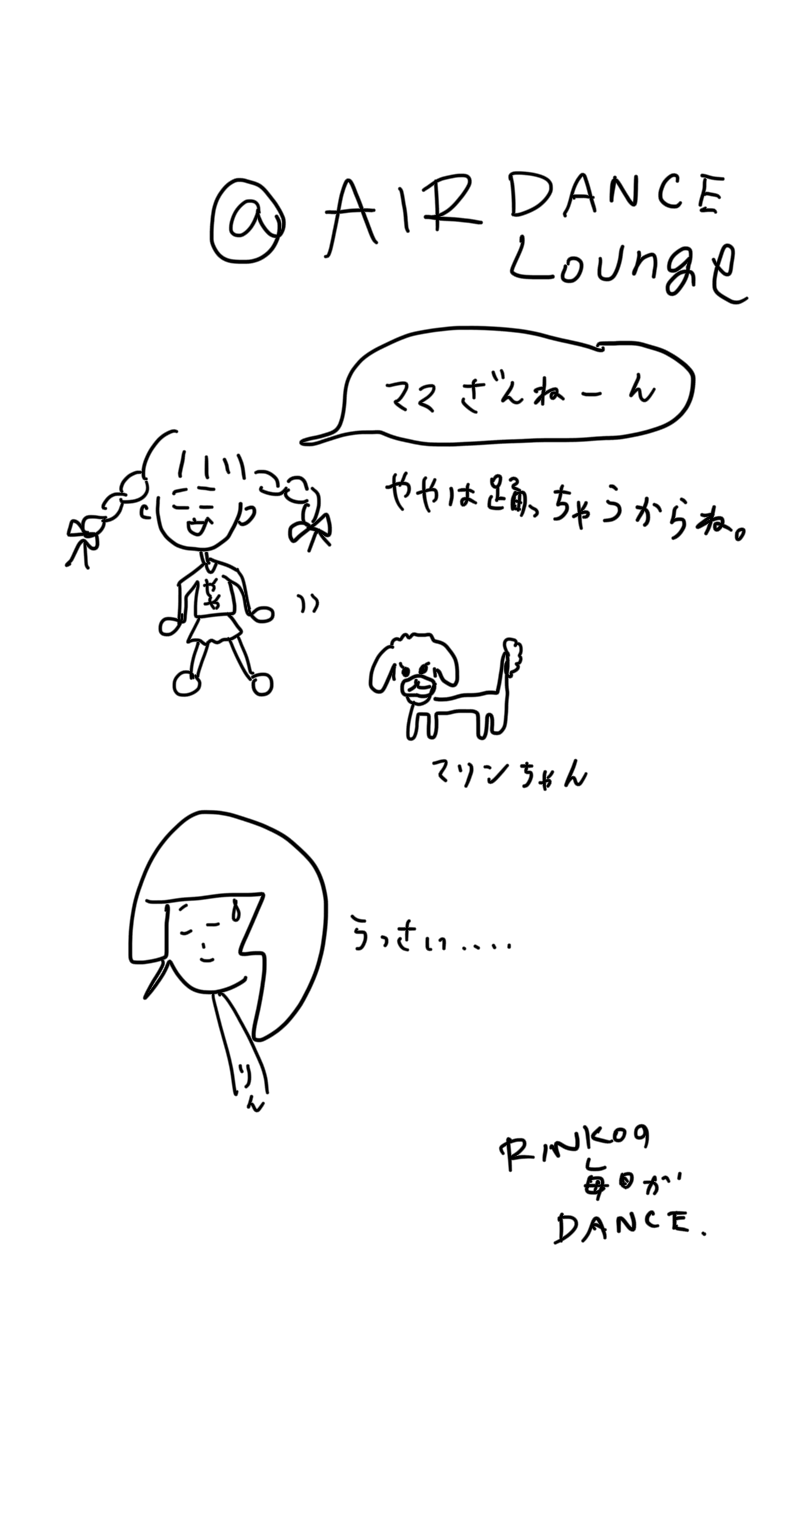 @ AIR DANCE
Lounge
ママ ざんねーん
ややは踊っちゃうからね。
やや
マリンちゃん
うっさい....
りん
RINKOの
毎日が
DANCE.